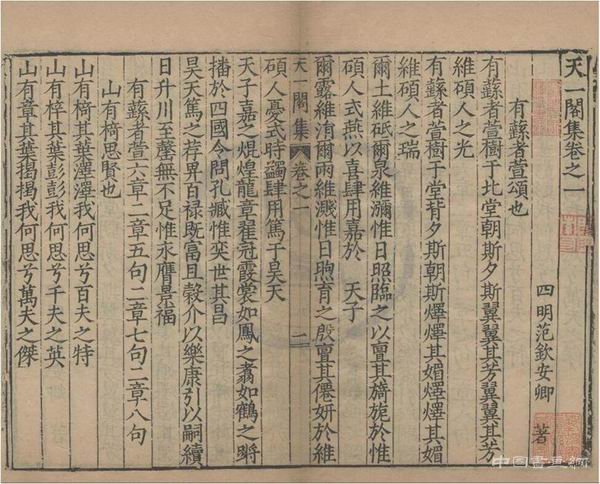 天一閣集卷之一
四明范欽安卿 著
有蘓者萱頌也
有蘓者萱樹于北堂朝斯夕斯翼翼其芳翼翼其芳
維碩人之光
有蘓者萱樹于堂背夕斯朝斯燁燁其媚燁燁其媚
維碩人之瑞
爾土維砥爾泉維瀰惟日照臨之以亶其旖旎於惟
碩人式燕以喜肆用嘉於 天子
爾露維湑爾雨維濺惟日煦育之殷亶其僊妍於維
天一閣集 卷之一 二
碩人憂式時蠲肆用篤于昊天
天子嘉之焜煌龍章翟冠霞裳如鳳之翥如鶴之蹡
播於四國令問孔臧惟奕世其昌
昊天篤之荐畀百祿既富且穀介以樂康引以嗣續
日升川至罄無不足惟永膺景福
有蘓者萱六章二章五句二章七句二章八句
山有椅思賢也
山有椅其葉澤澤我何思兮百夫之特
山有梓其葉彭彭我何思兮千夫之英
山有章其葉揭揭我何思兮萬夫之傑